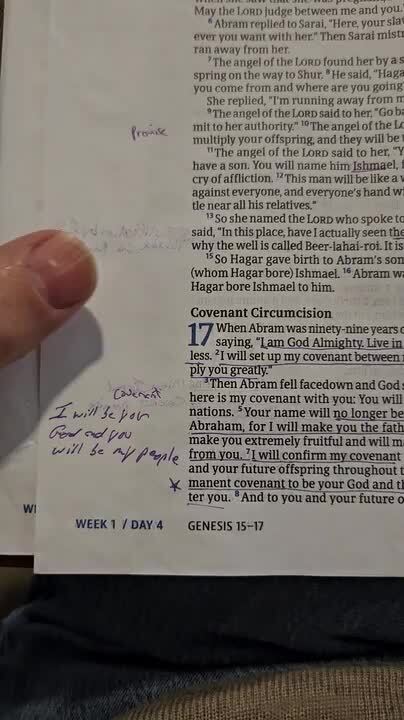 When saw that she was pregnant
May the LORD judge between me and you."
6 Abram replied to Sarai, "Here, your slav
ever you want with her." Then Sarai mistr
ran away from her.
7 The angel of the LORD found her by a s
spring on the way to Shur. 8 He said, "Haga
you come from and where are you going
She replied, "I'm running away from m
9 The angel of the LORD said to her, "Go ba
mit to her authority." 10 The angel of the Lo
multiply your offspring, and they will be t
Promise
11 The angel of the LORD said to her, "Y
have a son. You will name him Ishmael, f
cry of affliction. 12 This man will be like a w
against everyone, and everyone's hand wi
tle near all his relatives."
13 So she named the LORD who spoke to
said, "In this place, have I actually seen the
why the well is called Beer-lahai-roi. It is
15 So Hagar gave birth to Abram's son
(whom Hagar bore) Ishmael. 16 Abram wa
Hagar bore Ishmael to him.
Covenant Circumcision
17 When Abram was ninety-nine years o
saying, "I am God Almighty. Live in
less. 2 I will set up my covenant between
ply you greatly."
3 Then Abram fell facedown and God s
here is my covenant with you: You will
nations. 5 Your name will no longer be
Abraham, for I will make you the fath
make you extremely fruitful and will m
from you. 7 I will confirm my covenant
and your future offspring throughout t
manent covenant to be your God and th
ter you. 8 And to you and your future o
Covenant
I will be your
God and you
will be my people
WEEK 1 / DAY 4 GENESIS 15–17
WE